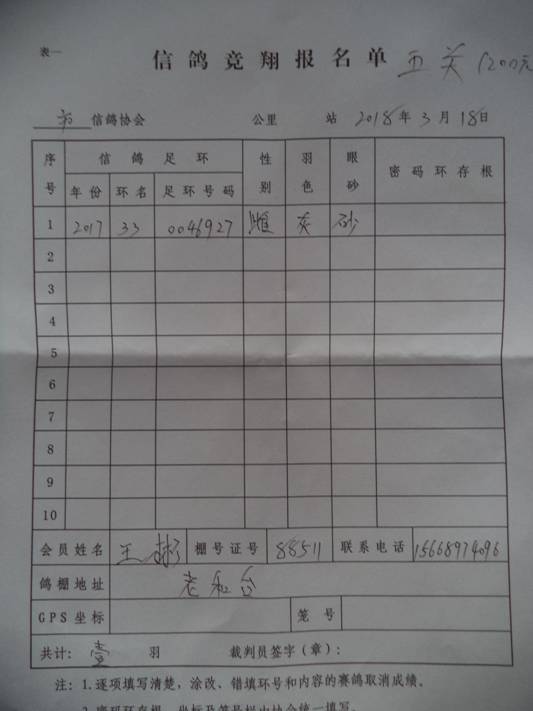 表一
信鸽竞翔报名单 五关 1200元
市 信鸽协会 公里 站 2018年3月18日
序号 信鸽足环 性别 羽色 眼砂 密码环存根
年份 环名 足环号码
1 2017 33 0046927 雌 灰 砂
2
3
4
5
6
7
8
9
10
会员姓名 王彬 棚号证号 88511 联系电话 15668974096
鸽棚地址 老和台
GPS坐标 笼号
共计: 壹 羽 裁判员签字(章):
注: 1.逐项填写清楚，涂改、错填环号和内容的赛鸽取消成绩。
2.密码环存根、坐标及笼号栏由协会统一填写。